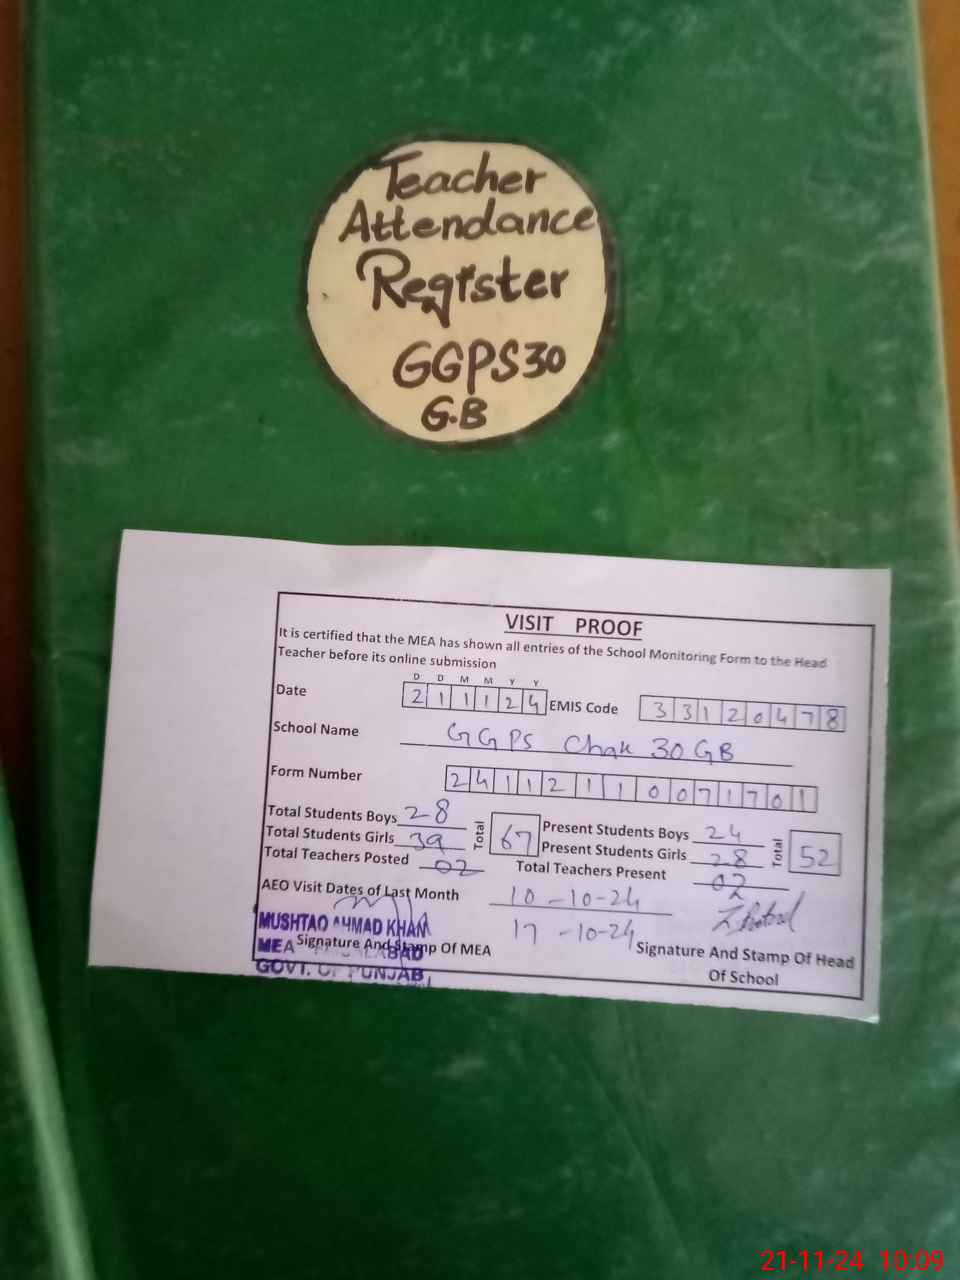 Teacher
Attendance
Register
GGPS30
G.B
VISIT PROOF
It is certified that the MEA has shown all entries of the School Monitoring Form to the Head
Teacher before its online submission
D D M M Y Y
Date 2 1 1 1 2 4 EMIS Code 3 3 1 2 0 4 7 8
School Name GGPS Chak 30 GB
Form Number 2 4 1 1 2 1 1 0 0 7 1 7 0 1
Total Students Boys 28 Total 67 Present Students Boys 24 Total 52
Total Students Girls 39 Present Students Girls 28
Total Teachers Posted 02 Total Teachers Present 02
AEO Visit Dates of Last Month 10-10-24
17-10-24
MUSHTAQ AHMAD KHAN
MEA FAISALABAD
GOVT. OF PUNJAB
Signature And Stamp Of MEA
Signature And Stamp Of Head
Of School
21-11-24 10:09